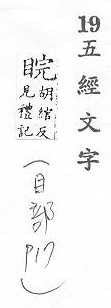 19五經文字
睆胡綰反
見禮記
(目部
P17)